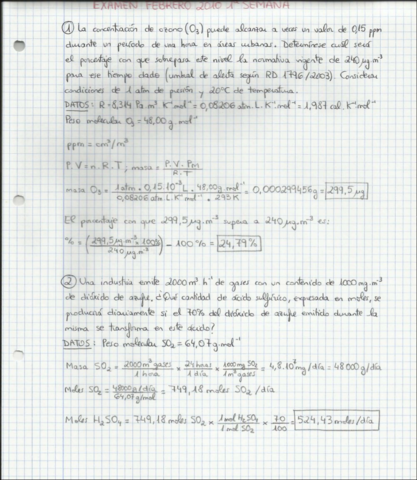 EXAMEN FEBRERO 2010 1ª SEMANA
① La concentración de ozono (O₃) puede alcanzar a veces un valor de 0,15 ppm
durante un período de una hora en áreas urbanas. Determínese cuál será
el porcentaje con que sobrepasa este nivel la normativa vigente de 240 μg·m⁻³
para ese tiempo dado (umbral de alerta según RD 1796/2003). Considerar
condiciones de 1 atm de presión y 20ºC de temperatura.
DATOS: R = 8,314 Pa·m³·K⁻¹·mol⁻¹ = 0,08206 atm·L·K⁻¹·mol⁻¹ = 1,987 cal·K⁻¹·mol⁻¹
Peso molecular O₃ = 48,00 g·mol⁻¹
ppm = cm³/m³
P.V = n.R.T ; masa = P.V.Pm / R.T
masa O₃ = 1 atm · 0,15·10⁻³ L · 48,00 g·mol⁻¹ / 0,08206 atm·L·K⁻¹·mol⁻¹ · 293K = 0,000299456 g = 299,5 μg
El porcentaje con que 299,5 μg·m⁻³ supera a 240 μg·m⁻³ es:
% = (299,5 μg·m⁻³ · 100% / 240 μg·m⁻³) - 100% = 24,79%
② Una industria emite 2000 m³ h⁻¹ de gases con un contenido de 1000 mg·m⁻³
de dióxido de azufre, ¿Qué cantidad de ácido sulfúrico, expresada en moles, se
producirá diariamente si el 70% del dióxido de azufre emitido durante la
misma se transforma en este ácido?
DATOS: Peso molecular SO₂ = 64,07 g·mol⁻¹
Masa SO₂ = 2000 m³ gases / 1 hora × 24 horas / 1 día × 1000 mg SO₂ / 1 m³ gases = 4,8·10⁷ mg/día = 48000 g/día
Moles SO₂ = 48000 g/día / 64,07 g/mol = 749,18 moles SO₂/día
Moles H₂SO₄ = 749,18 moles SO₂ × 1 mol H₂SO₄ / 1 mol SO₂ × 70 / 100 = 524,43 moles/día